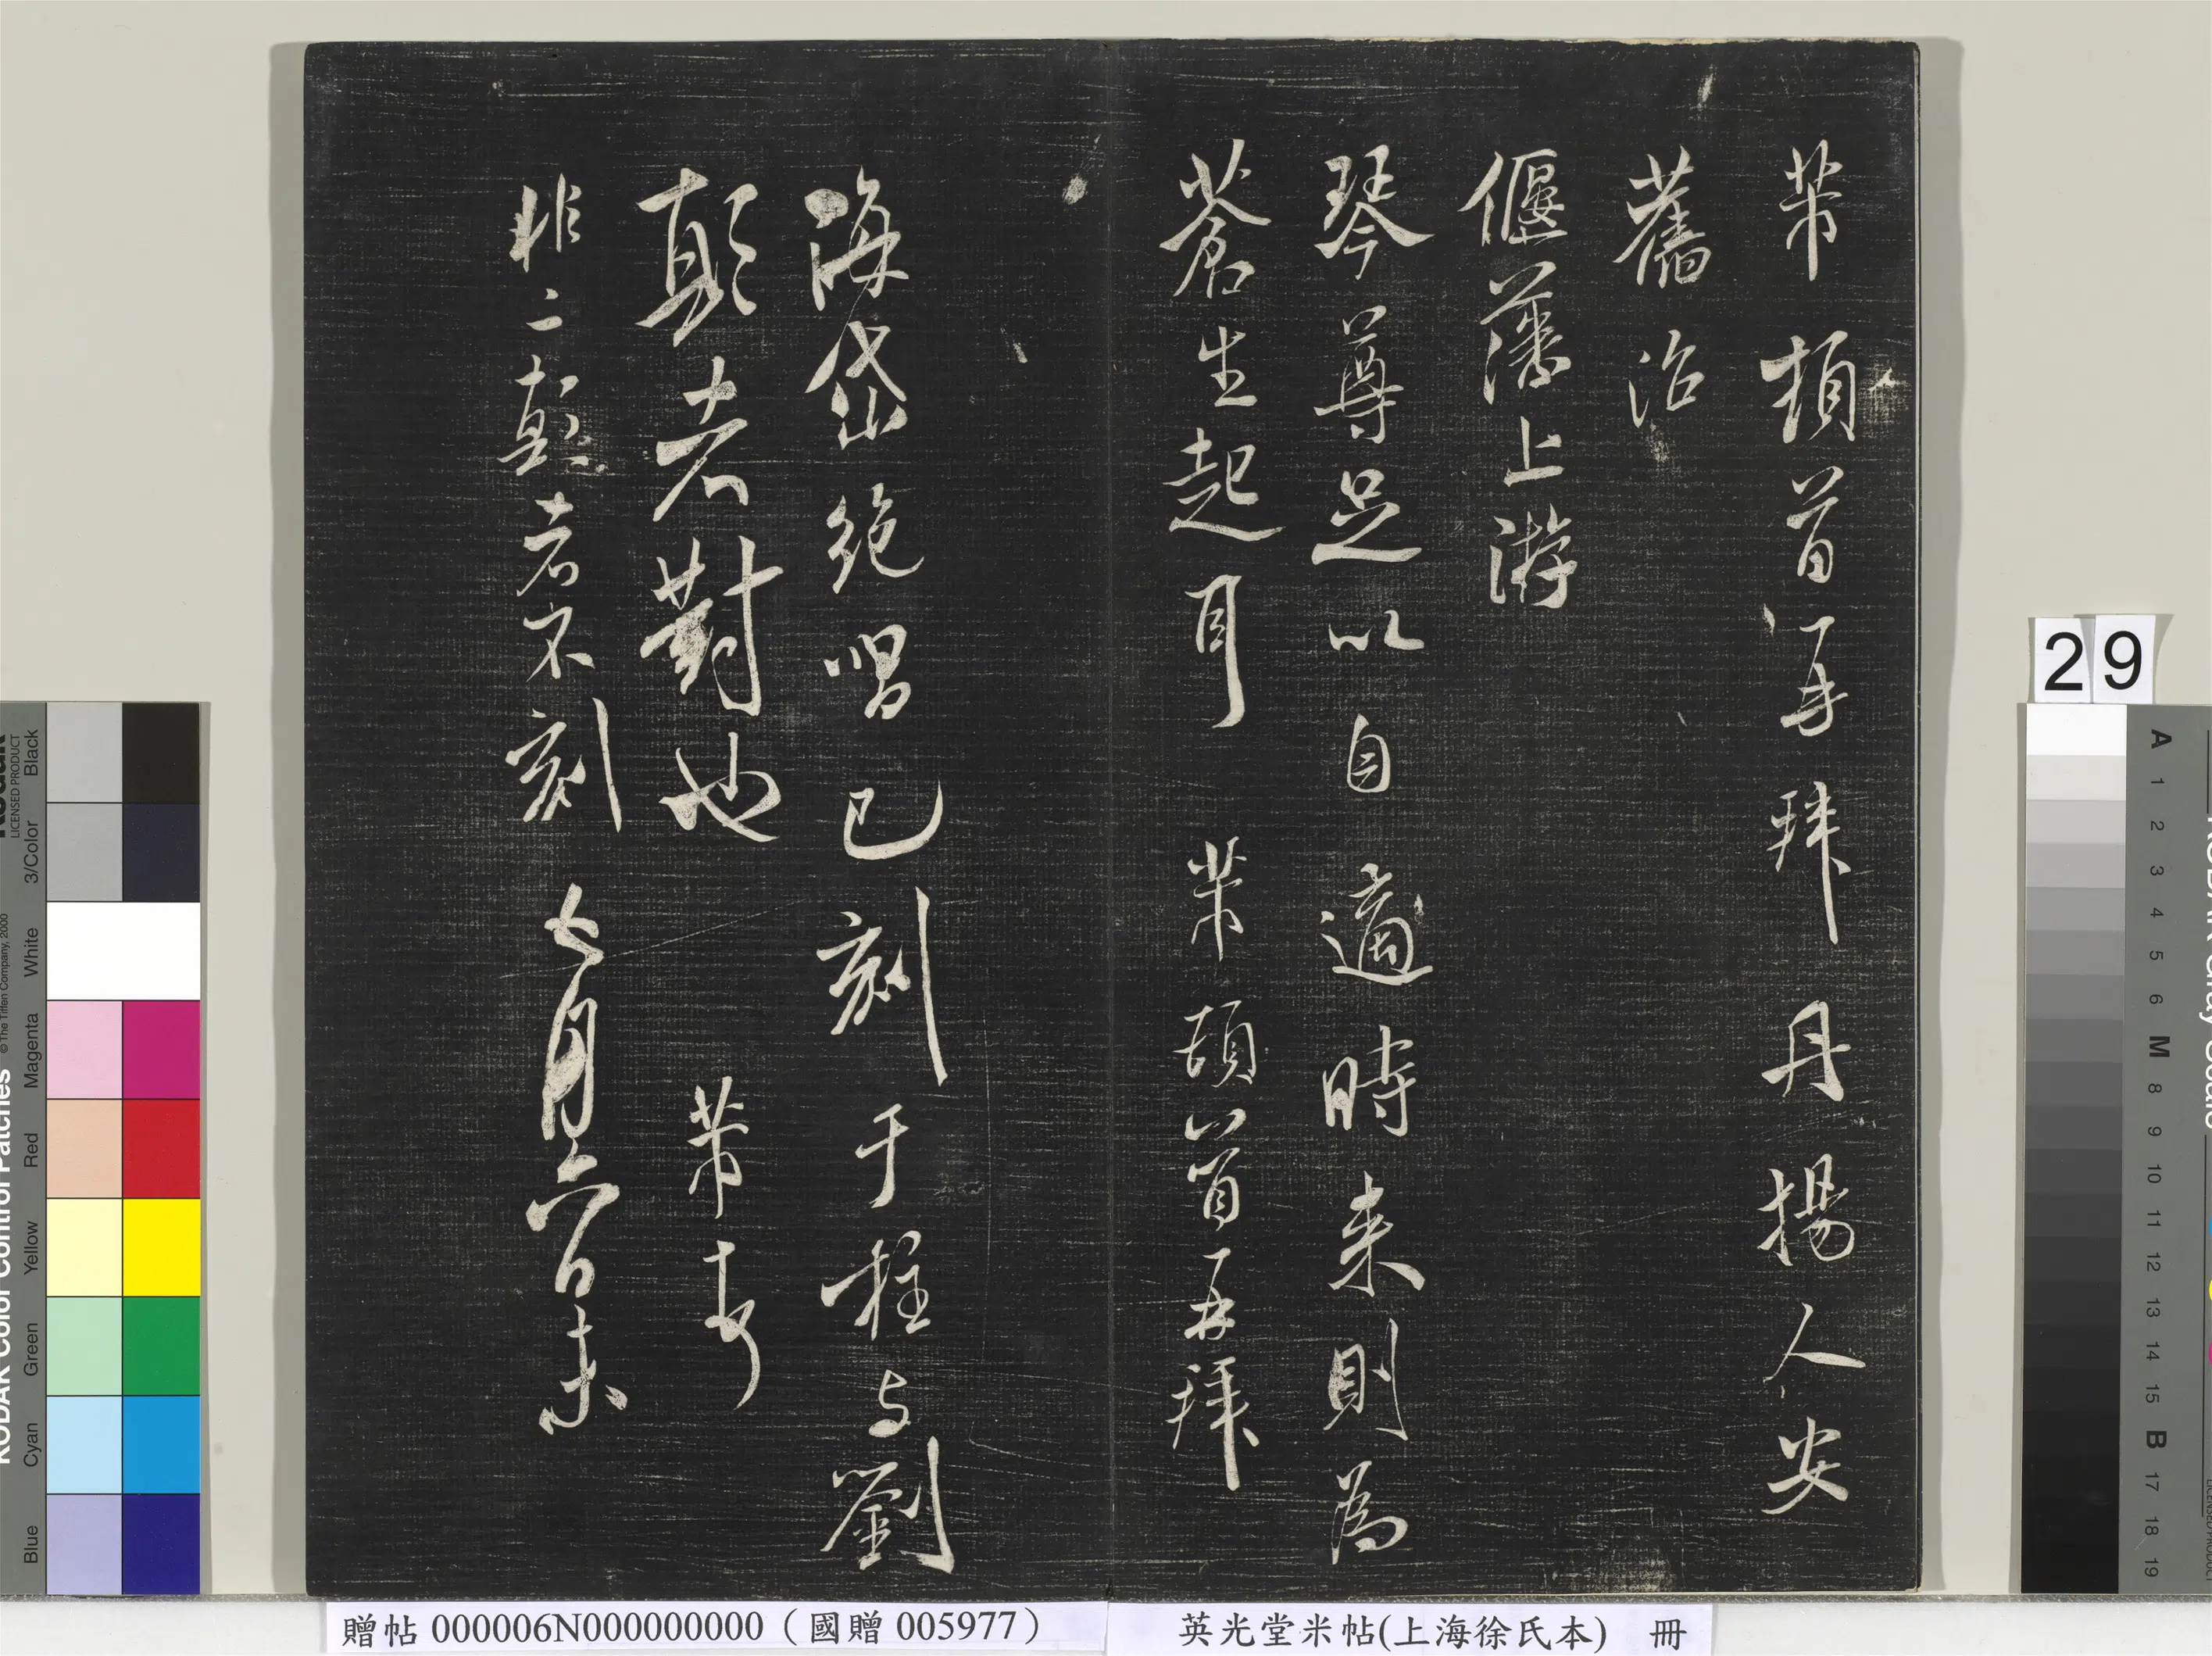 芾頓首再拜丹揚人安
舊治
偃藩上游
琴尊足以自適時来則為
蒼生起耳 芾頓首再拜
海岱絶唱已刻于柱与劉
顛老對也 芾
非二顛者不刻 七月六日
贈帖 000006N000000000（國贈 005977）
英光堂米帖(上海徐氏本) 冊
29
KODAK Color Control Patches
© The Tiffen Company, 2000
LICENSED PRODUCT
Blue
Cyan
Green
Yellow
Red
Magenta
White
3/Color
Black
A
1
2
3
4
5
6
M
8
9
10
11
12
13
14
15
B
17
18
19